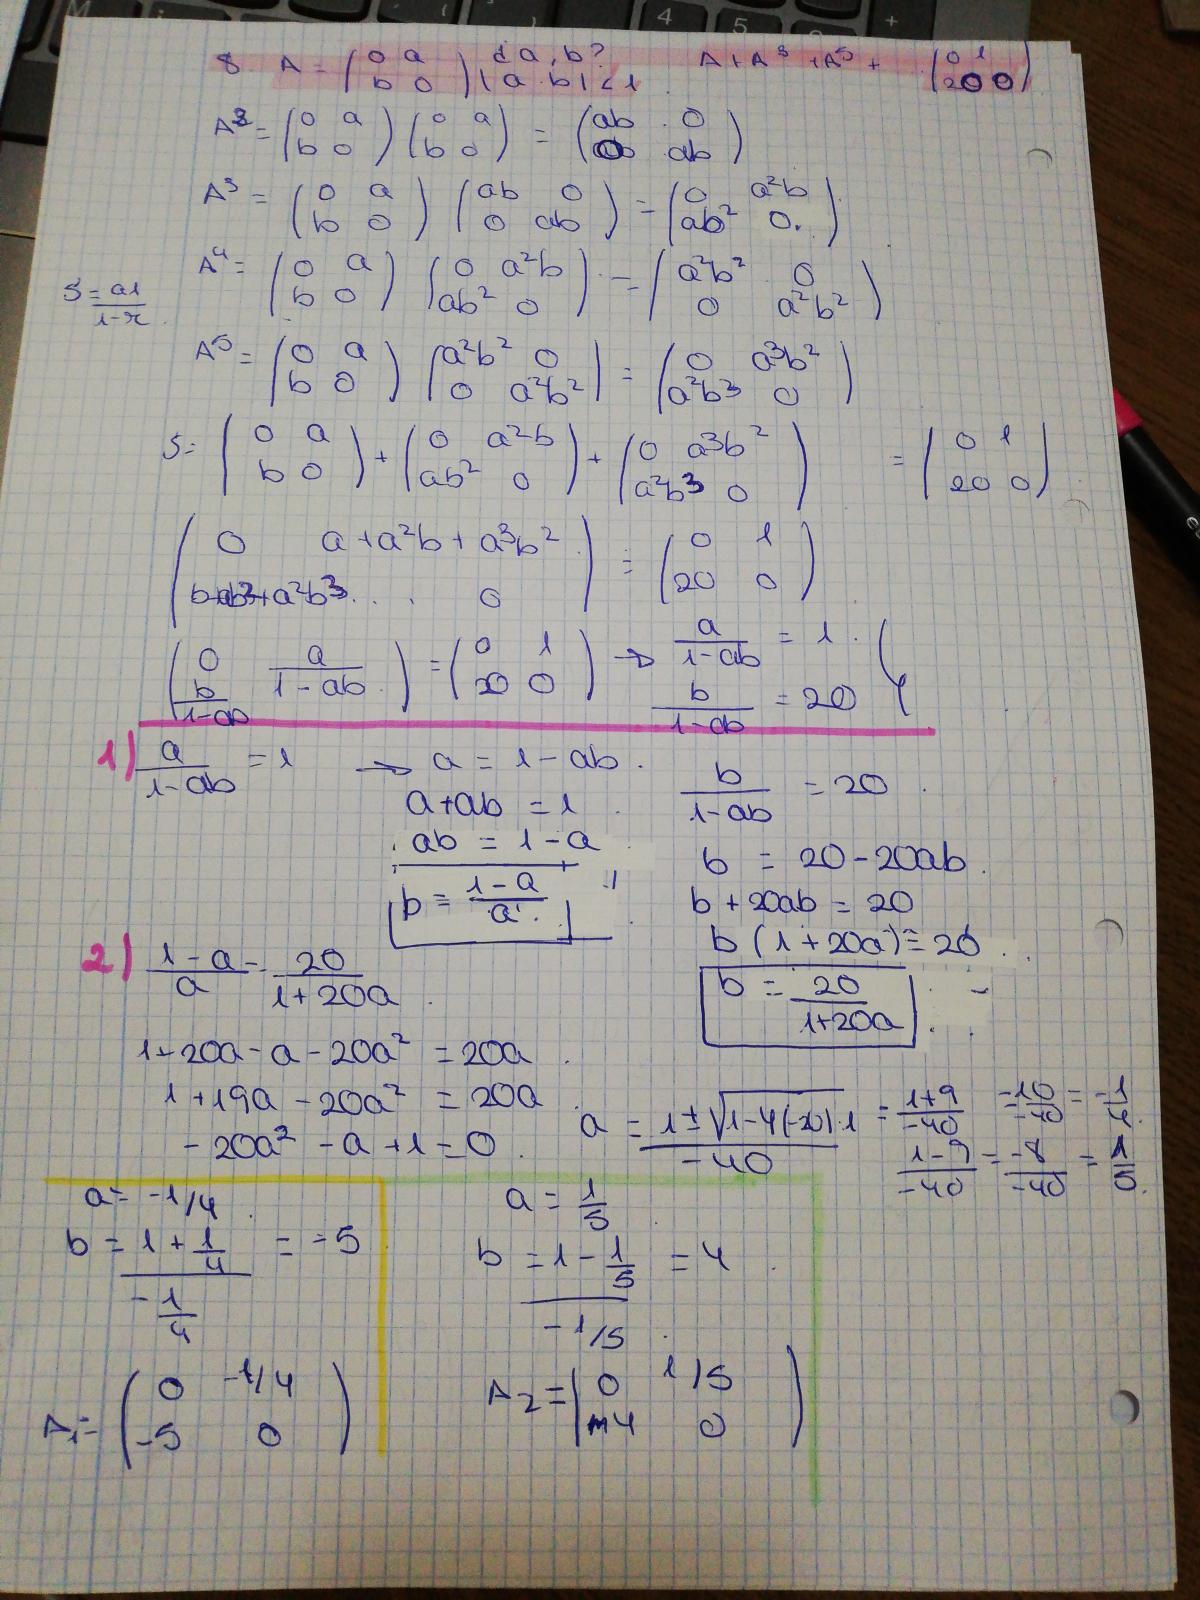 8. A = (0 a / b 0) ¿a, b? |a·b| < 1 A + A³ + A⁵ + (0 1 / 20 0)
A² = (0 a / b 0) (0 a / b 0) = (ab 0 / 0 ab)
A³ = (0 a / b 0) (ab 0 / 0 ab) = (0 a²b / ab² 0)
A⁴ = (0 a / b 0) (0 a²b / ab² 0) = (a²b² 0 / 0 a²b²)
S = a1/(1-r)
A⁵ = (0 a / b 0) (a²b² 0 / 0 a²b²) = (0 a³b² / a²b³ 0)
S = (0 a / b 0) + (0 a²b / ab² 0) + (0 a³b² / a²b³ 0) = (0 1 / 20 0)
(0 a+a²b+a³b² / b+ab²+a²b³... 0) = (0 1 / 20 0)
(0 a/(1-ab) / b/(1-ab)) = (0 1 / 20 0) → a/(1-ab) = 1
b/(1-ab) = 20
1) a/(1-ab) = 1 → a = 1-ab
a+ab = 1
ab = 1-a
b = (1-a)/a
b/(1-ab) = 20
b = 20-20ab
b+20ab = 20
b(1+20a) = 20
b = 20/(1+20a)
2) (1-a)/a = 20/(1+20a)
1+20a-a-20a² = 20a
1+19a-20a² = 20a
-20a²-a+1=0
a = (1±√(1-4(-20)·1))/-40 = (1+9)/-40 = 10/-40 = -1/4
(1-9)/-40 = -8/-40 = 1/5
a = -1/4
b = (1+1/4)/(-1/4) = -5
A₁ = (0 -1/4 / -5 0)
a = 1/5
b = (1-1/5)/(-1/5) = 4
A₂ = (0 1/5 / 4 0)